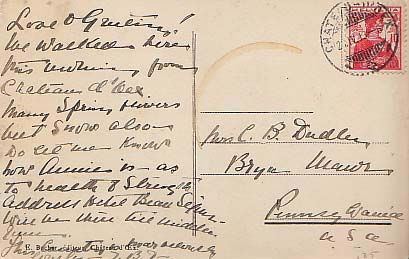 Love & Greeting!
We walked here
this morning from
Chateau d'Oex
many Spring flowers
but Snow also
Do let me know
how Annie is as
to health & Strength
Address Hotel Beau Sejour
Will be there till middle
June.
Mrs C. B. Dudley
Bryn Mawr
Pennsylvania
U.S.A